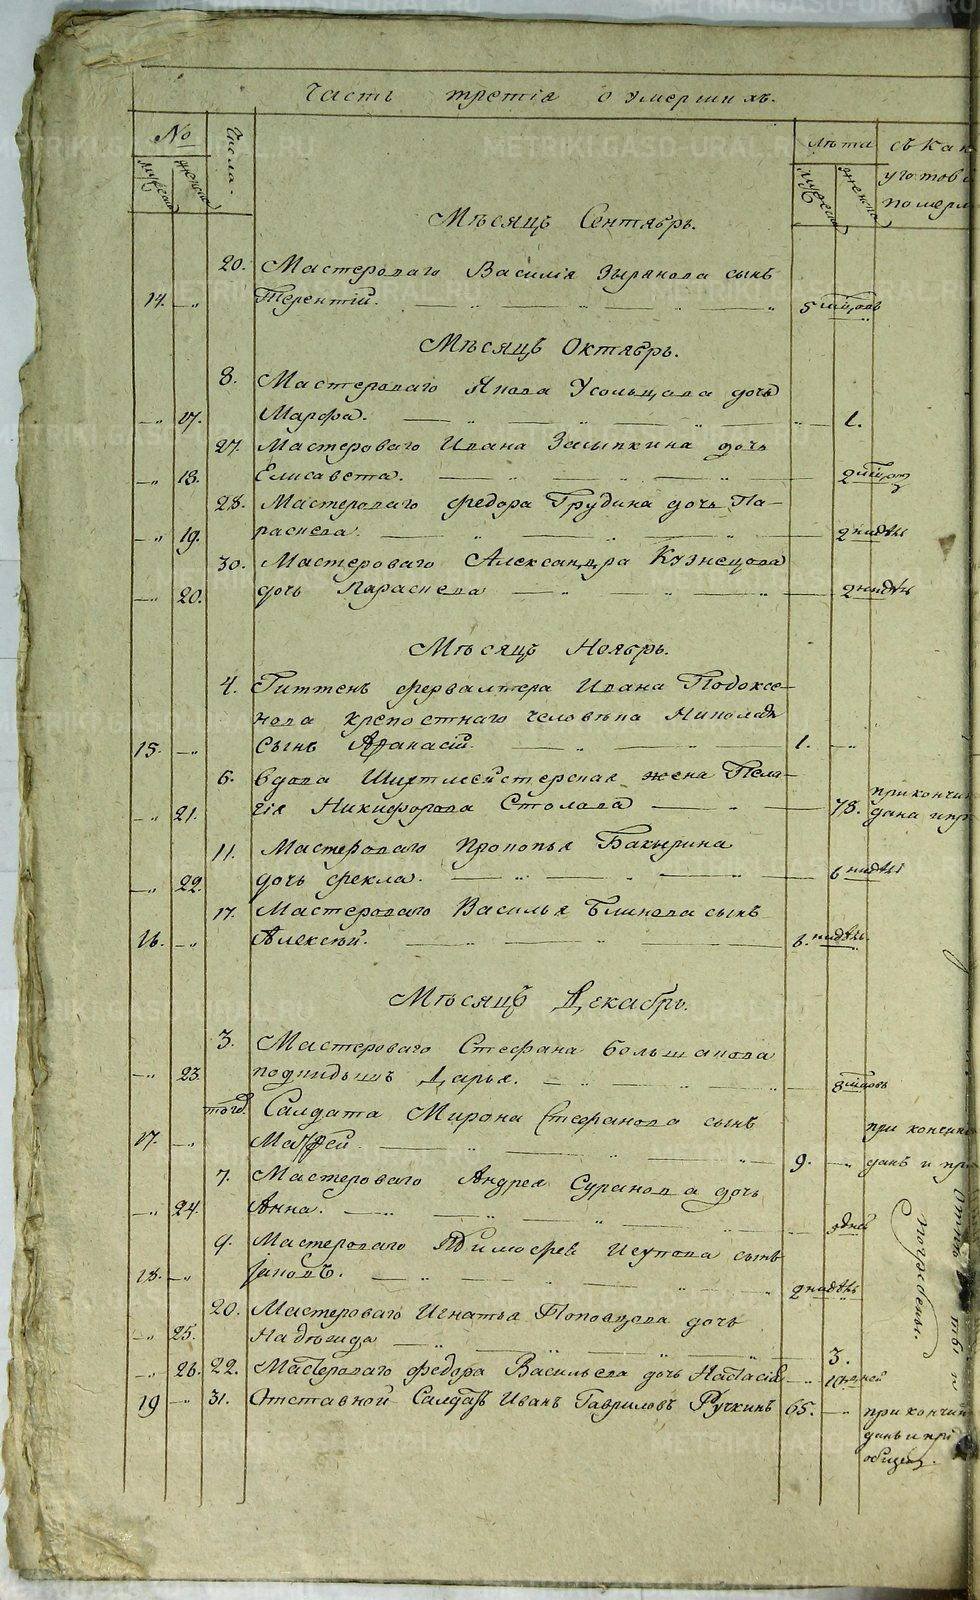 Часть третія о умершихъ.
№ Числа. лѣта съ как
мужеска женска мужеска женска уготов
помер
Мѣсяцъ Сентябрь.
20. Мастероваго Василія Зырянова сынъ
14. —„ Терентій. 5 мцовъ
Мѣсяцъ Октябрь.
8. Мастероваго Якова Усольцова дочь
—„ 17. Марфа. 1.
27. Мастероваго Ивана Засыпкина дочь
—„ 18. Елисавета. 2 мцов
28. Мастероваго Федора Грудина дочь Па-
—„ 19. раскева. 2 нидѣль
30. Мастероваго Александра Кузнецова
—„ 20. дочь Параскева 2 нидѣль
Мѣсяцъ Ноябрь.
4. Гиттенъ фервалтера Ивана Подоксе-
нова крепостнаго человѣка Николая
15. —„ сынъ Афанасій. 1. —„
6. Вдова Шихтмейстерская жена Пела-
—„ 21. гія Никифорова Столова 78. при кончи
дана и пр
11. Мастероваго Прокопья Бакырина
—„ 22. дочь Фекла. 6 нидѣль
17. Мастероваго Василья Блинова сынъ
16. —„ Алексѣй. 6. нидѣль.
Мѣсяцъ Декабрь.
3. Мастероваго Стефана Большакова
—„ 23. подкидышъ Дарья. 8 мцовъ
того. Салдата Мирона Стефанова сынъ при кончин
17. —„ Матфей 9. —„ данъ и при
7. Мастероваго Андрея Суранова дочь
—„ 24. Анна. дней
9. Мастероваго Тимофея Исупова сынъ
18. —„ Іаковъ. 2 нидѣль
погребены.
20. Мастероваго Игнатья Поповцова дочь
—„ 25. Надѣжда 3.
—„ 26. 22. Мастероваго Федора Васильева дочь Настасія 10 дней
19 —„ 31. Отставной Салдатъ Иванъ Гавриловъ Ручкинъ 65. —„ при кончин
данъ и прі
общен.